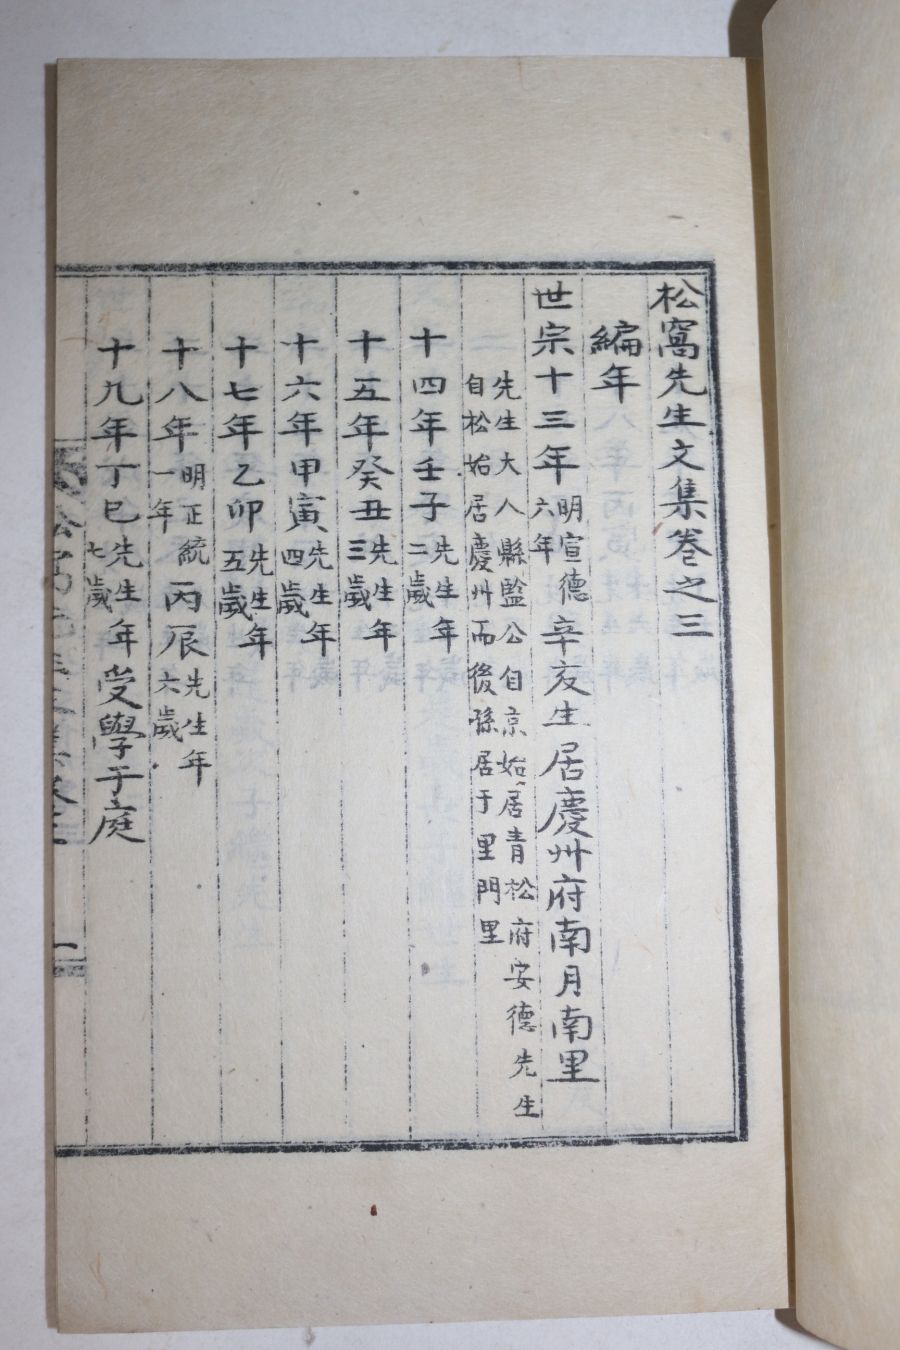 松窩先生文集卷之三
編年
世宗十三年明宣德六年辛亥生居慶州府南月南里
先生大人縣監公自京始居青松府安德先生
自松始居慶州而後孫居于里門里
十四年壬子先生年二歲
十五年癸丑先生年三歲
十六年甲寅先生年四歲
十七年乙卯先生年五歲
十八年明正統一年丙辰先生年六歲
十九年丁巳先生年七歲受學于庭
一